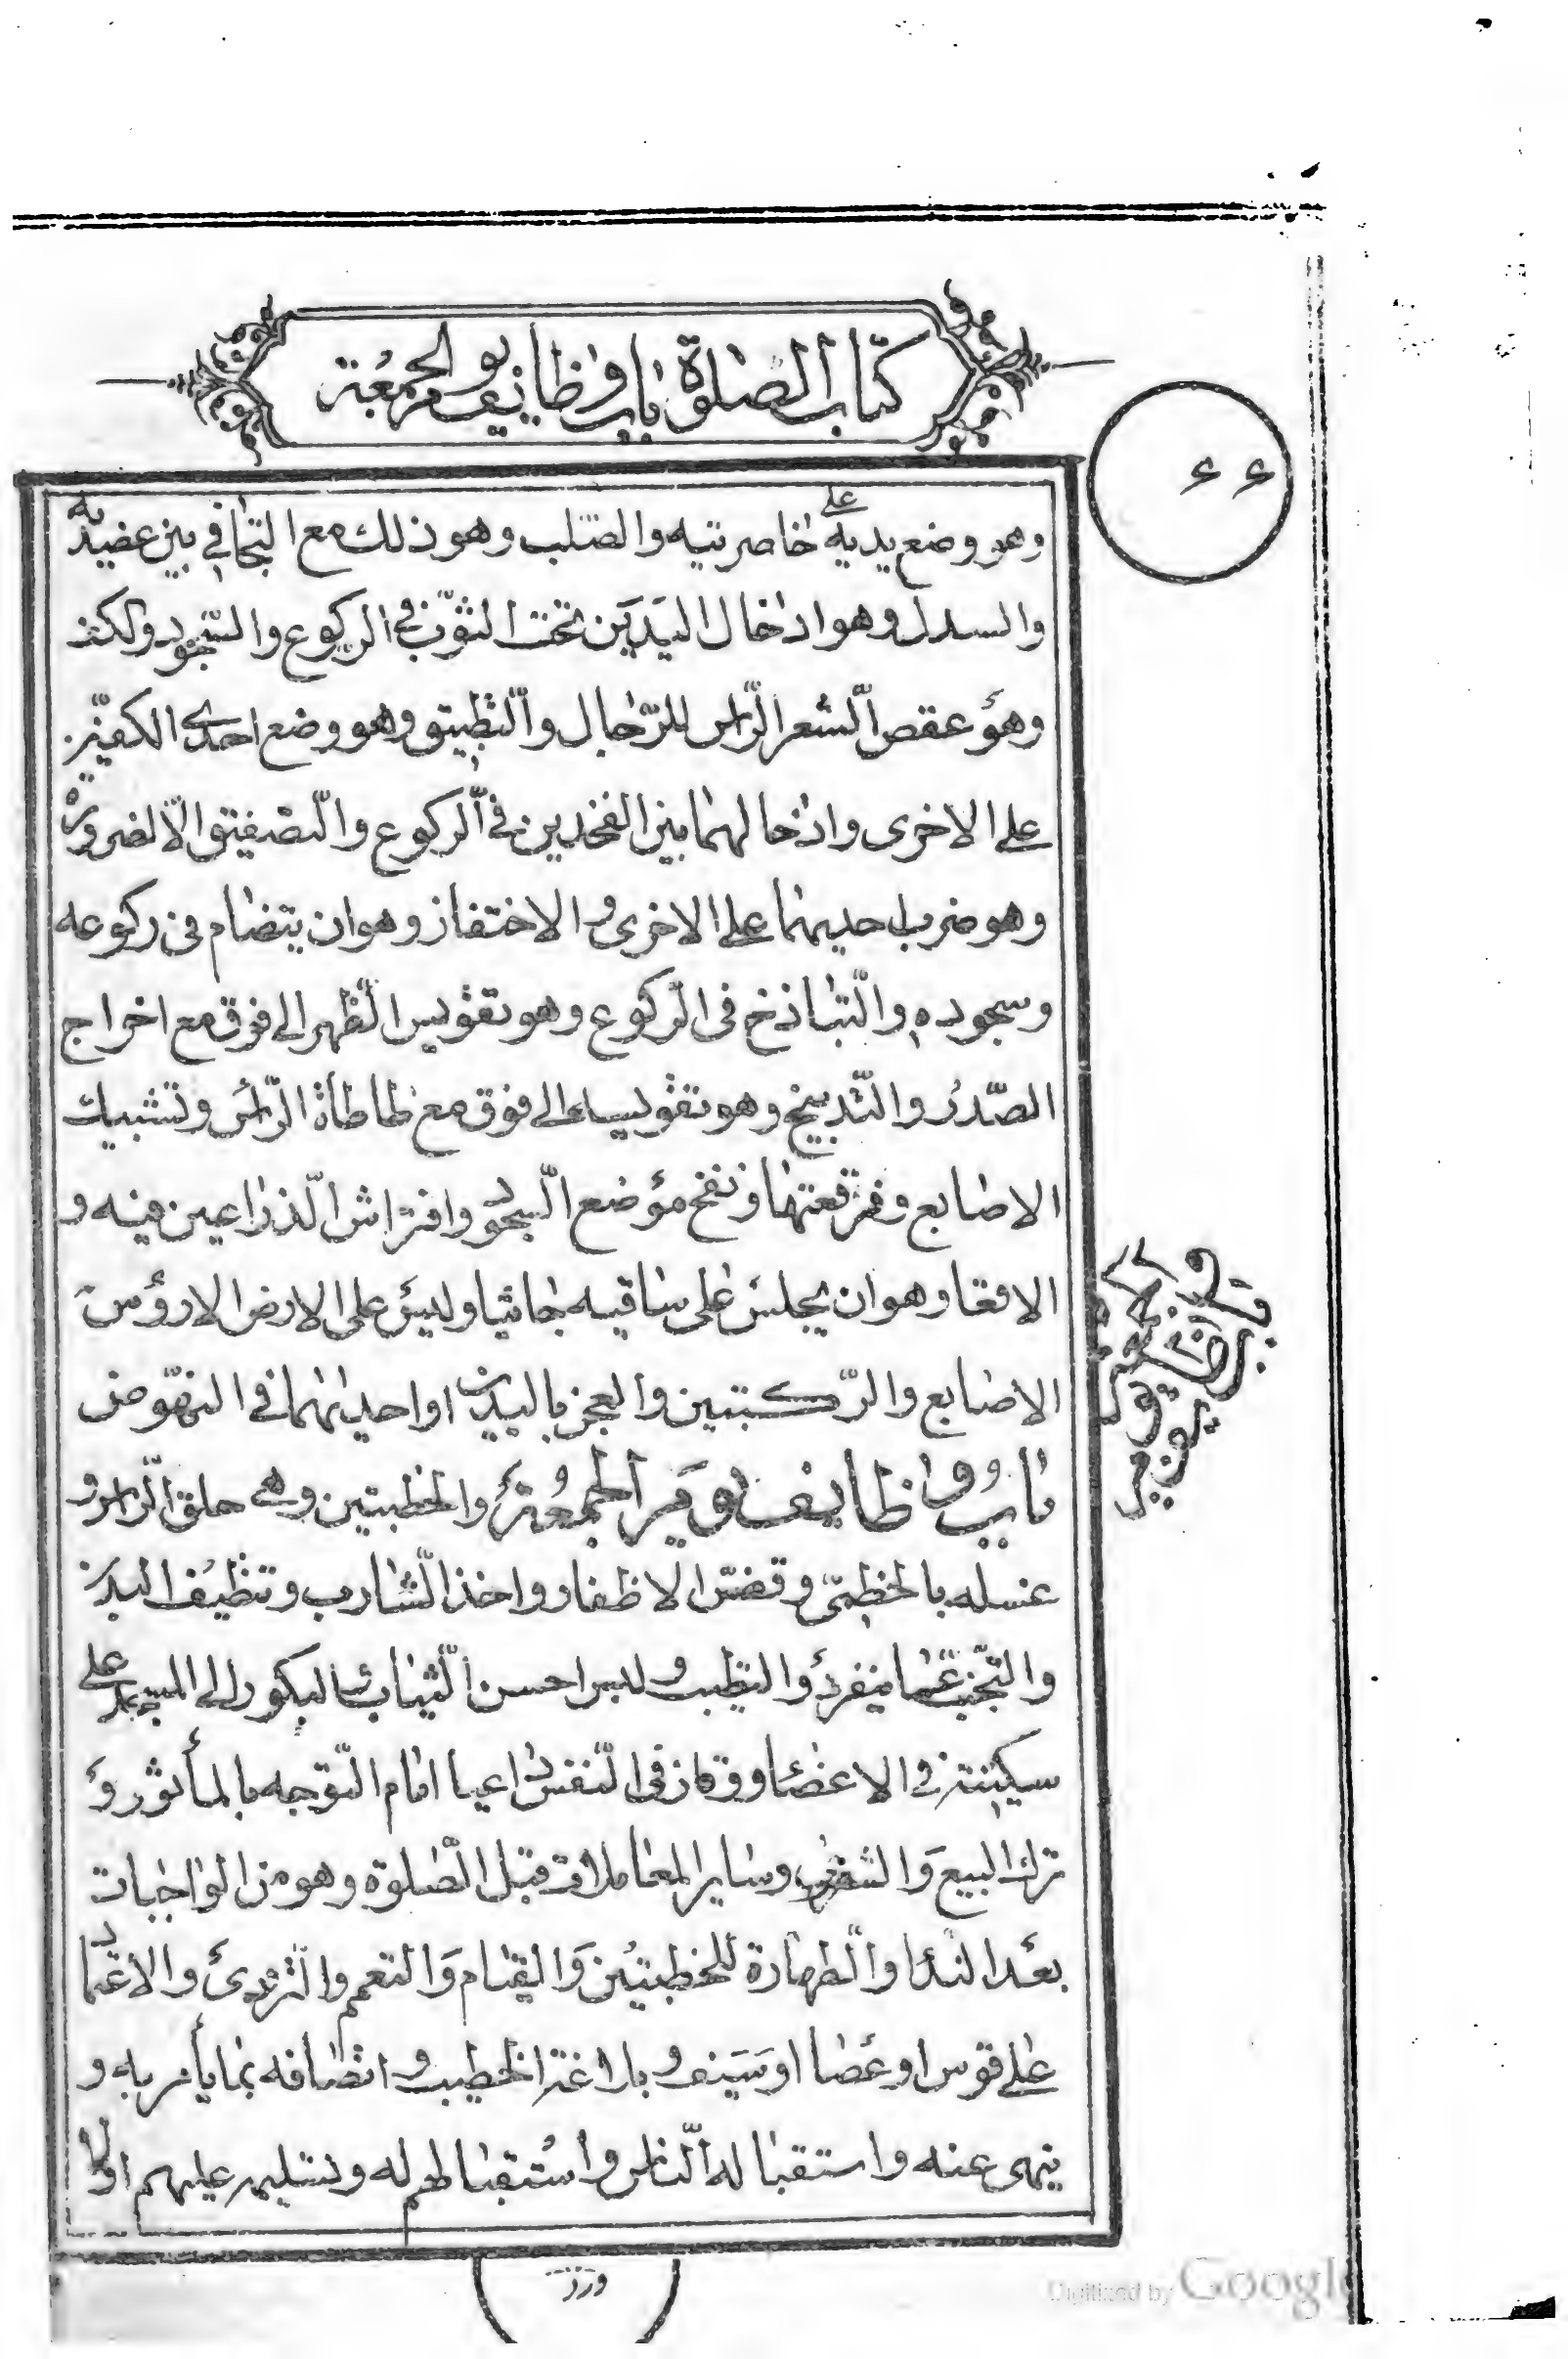 كتاب الصلوة باب وظايف يوم الجمعة
٤٤
وهو وضع يديه على خاصرتيه والصلب وهو ذلك مع التجافي بين عضديه
والسدل وهو ادخال اليدين تحت الثوب في الركوع والسجود والكف
وهو عقص الشعر الراس للرجال والتطبيق وهو وضع احدى الكفين
على الاخرى وادخالهما بين الفخدين في الركوع والتصفيق الا لضرورة
وهو ضرب احديهما على الاخرى والاختفاز وهو ان يتضام في ركوعه
وسجوده والتباذخ في الركوع وهو تقويس الظهر الى فوق مع اخراج
الصدر والتدبيخ وهو تقويسه الى فوق مع طاطأة الراس وتشبيك
الاصابع وفرقعتها ونفخ موضع السجود وافتراش الذراعين فيه و
الاقعا وهو ان يجلس على ساقيه جاثيا وليس على الارض الا رؤس
الاصابع والركبتين والعجز باليدين او احديهما في النهوض
باب وظايف يوم الجمعة والخطبتين وهي حلق الراس و
غسله بالخطمي وقص الاظفار واخذ الشارب وتنظيف البدن
والتجنب عما ينفر والتطيب ولبس احسن الثياب والبكور الى المسجد على
سكينة في الاعضا ووقار في النفس داعيا امام التوجه بالمأثور و
ترك البيع والسفر وساير المعاملات قبل الصلوة وهو من الواجبات
بعد الندا والطهارة للخطبتين والقيام والتعمم والتردي والاعتماد
على قوس او عصا او سيف وبلاغة الخطيب واتصافه بما يأمر به و
ينهى عنه واستقباله الناس واستقبالهم له وتسليمه عليهم اولا